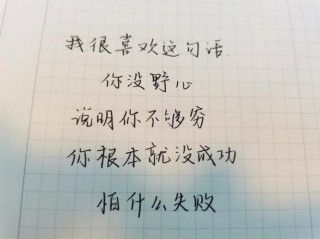 我很喜欢这句话.
你没野心
说明你不够穷
你根本就没成功
怕什么失败